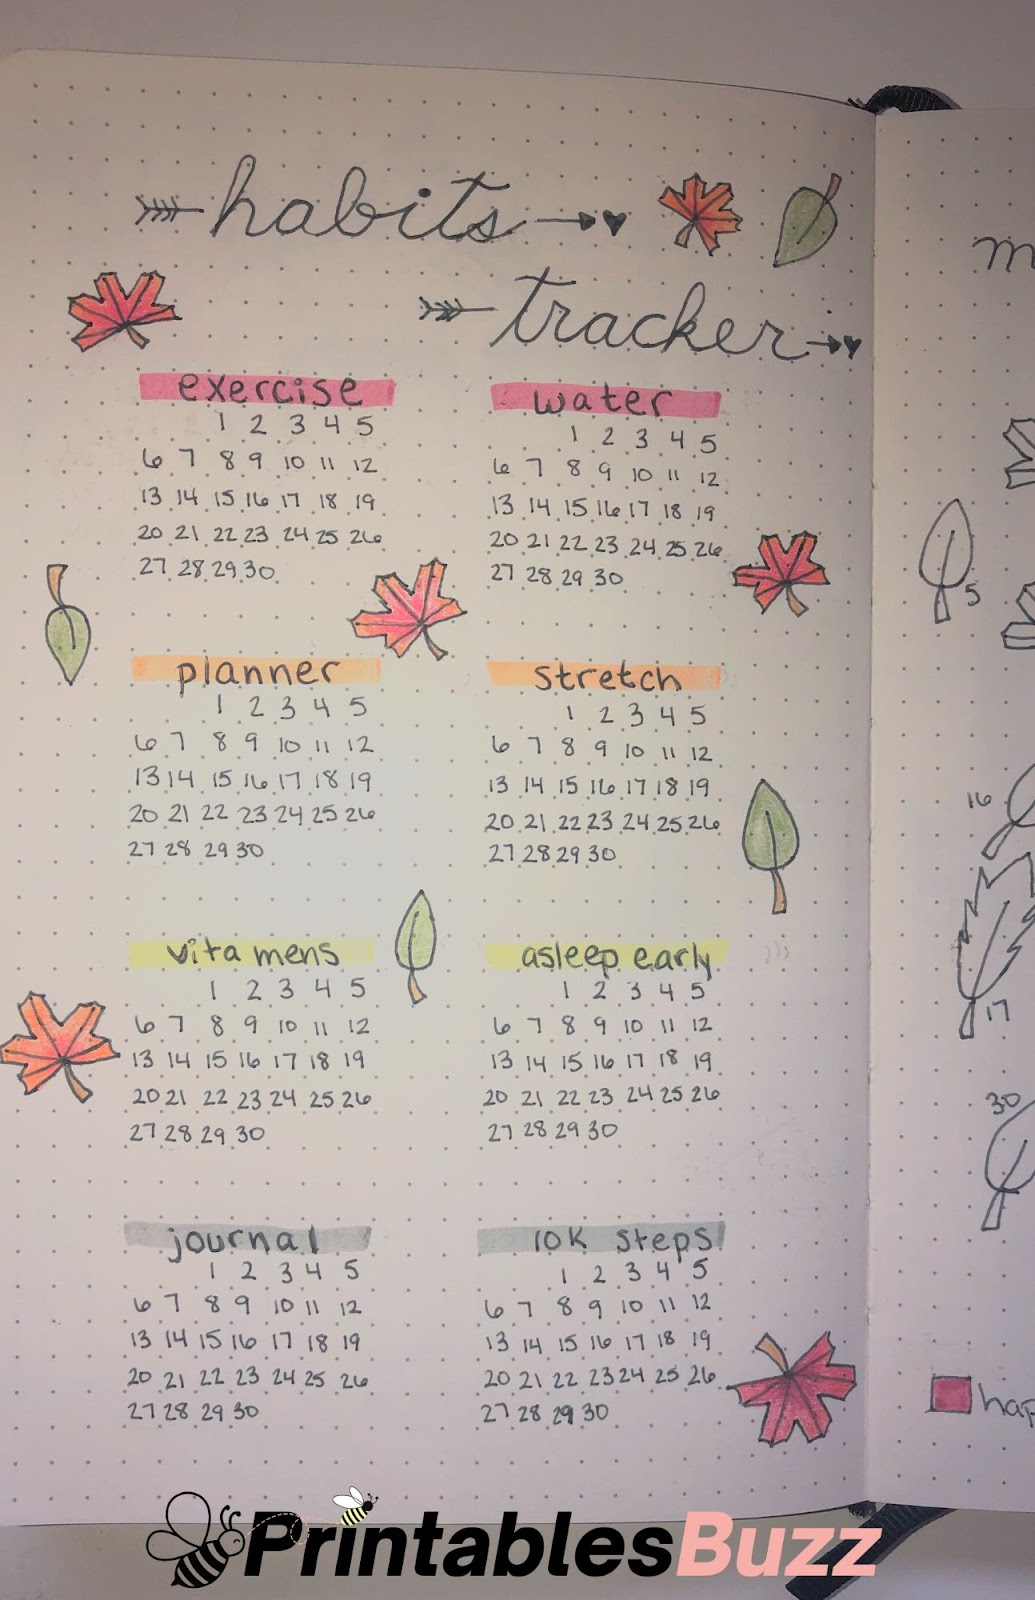 habits
tracker
exercise
1 2 3 4 5
6 7 8 9 10 11 12
13 14 15 16 17 18 19
20 21 22 23 24 25 26
27 28 29 30
water
1 2 3 4 5
6 7 8 9 10 11 12
13 14 15 16 17 18 19
20 21 22 23 24 25 26
27 28 29 30
planner
1 2 3 4 5
6 7 8 9 10 11 12
13 14 15 16 17 18 19
20 21 22 23 24 25 26
27 28 29 30
stretch
1 2 3 4 5
6 7 8 9 10 11 12
13 14 15 16 17 18 19
20 21 22 23 24 25 26
27 28 29 30
vitamens
1 2 3 4 5
6 7 8 9 10 11 12
13 14 15 16 17 18 19
20 21 22 23 24 25 26
27 28 29 30
asleep early
1 2 3 4 5
6 7 8 9 10 11 12
13 14 15 16 17 18 19
20 21 22 23 24 25 26
27 28 29 30
journal
1 2 3 4 5
6 7 8 9 10 11 12
13 14 15 16 17 18 19
20 21 22 23 24 25 26
27 28 29 30
10k steps
1 2 3 4 5
6 7 8 9 10 11 12
13 14 15 16 17 18 19
20 21 22 23 24 25 26
27 28 29 30
m
5
16
17
30
hap
PrintablesBuzz